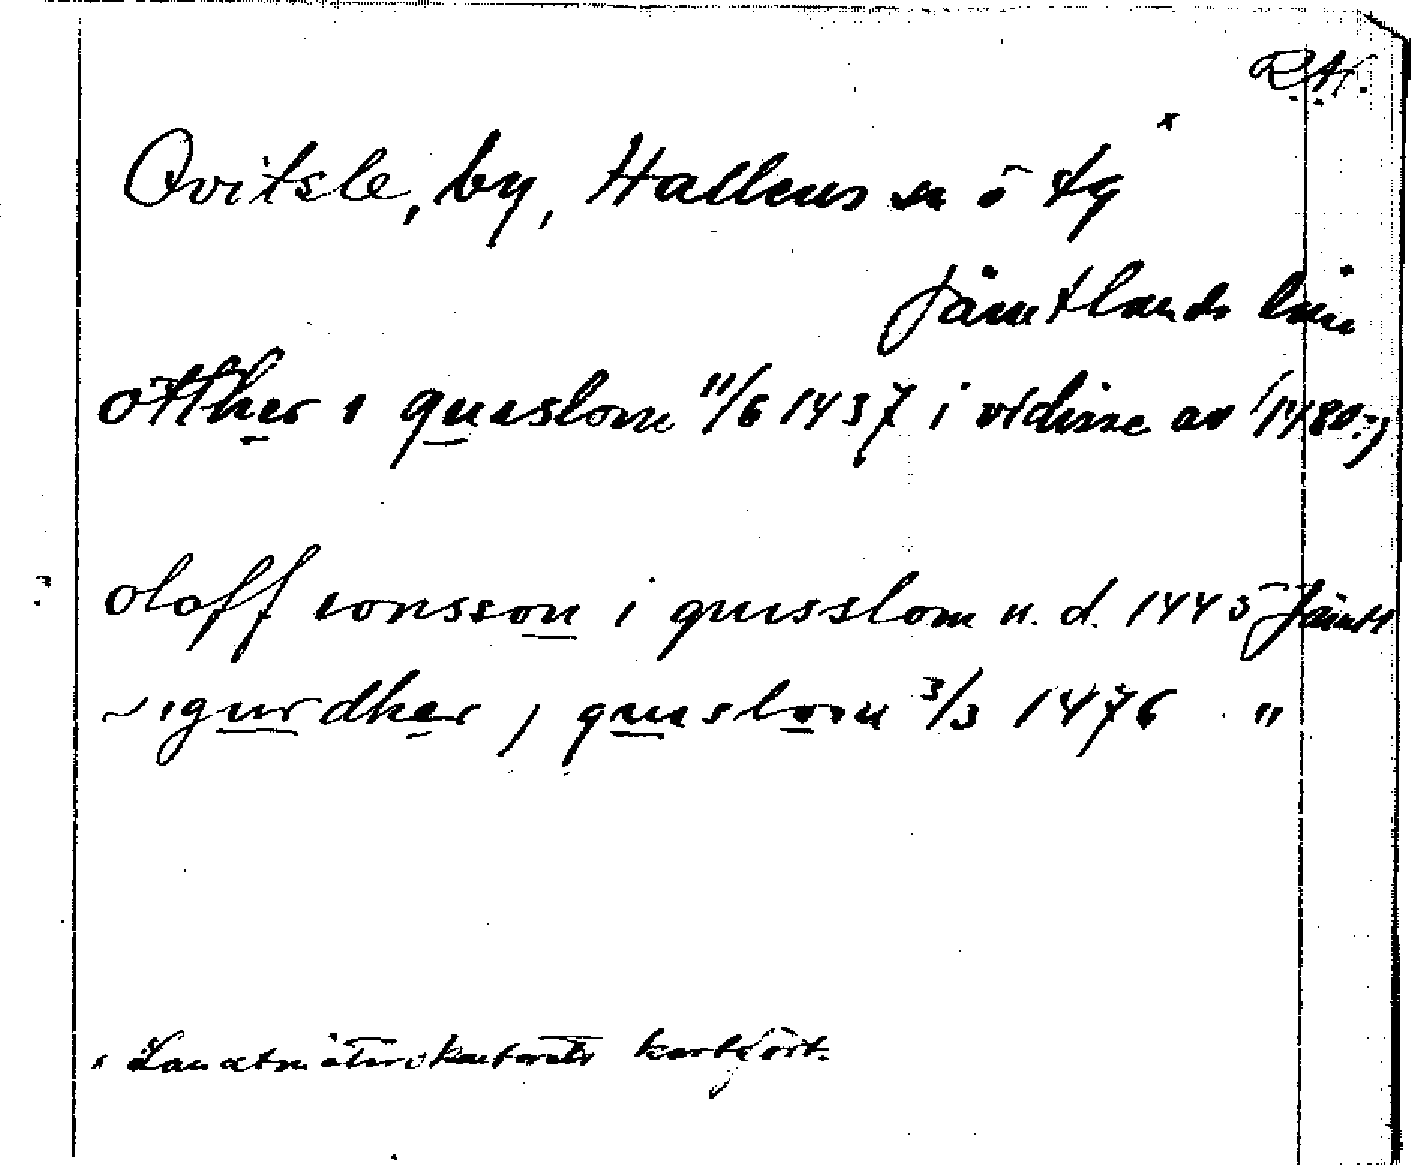 R.A.
Qvitsle, by, Hallens sn ö tg x
Jämtlands län
otther i queslom 11/6 1437 i vidisse av 1480
oloff ionsson i quisslom u. d. 1445 Jämtl
sigurdher j queslom 3/3 1476 "
x Landtmäterikontorets kartfört.